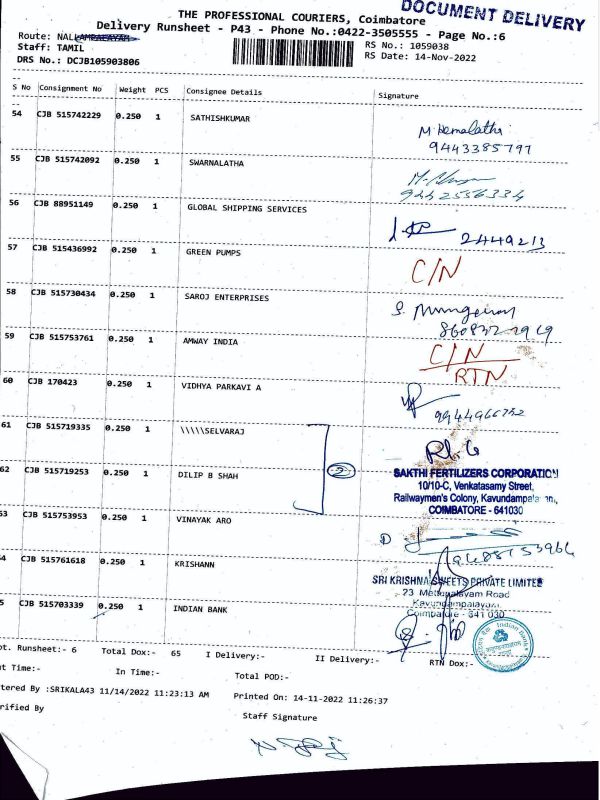 DOCUMENT DELIVERY
THE PROFESSIONAL COURIERS, Coimbatore
Delivery Runsheet - P43 - Phone No.:0422-3505555 - Page No.:6
Route: NALLAMPALAYAM
RS No.: 1059038
Staff: TAMIL
RS Date: 14-Nov-2022
DRS No.: DCJB105903806
S No Consignment No Weight PCS Consignee Details Signature
54 CJB 515742229 0.250 1 SATHISHKUMAR M. Hemalatha
9443385797
55 CJB 515742092 0.250 1 SWARNALATHA
9442556334
56 CJB 88951149 0.250 1 GLOBAL SHIPPING SERVICES
2449213
57 CJB 515436992 0.250 1 GREEN PUMPS C/N
58 CJB 515730434 0.250 1 SAROJ ENTERPRISES S. Murugesan
59 CJB 515753761 0.250 1 AMWAY INDIA C/N
RTN
60 CJB 170423 0.250 1 VIDHYA PARKAVI A
9944966752
61 CJB 515719335 0.250 1 \\\\\SELVARAJ
62 CJB 515719253 0.250 1 DILIP B SHAH 2
SAKTHI FERTILIZERS CORPORATION
10/10-C, Venkatasamy Street,
Railwaymen's Colony, Kavundampala
COIMBATORE - 641030
53 CJB 515753953 0.250 1 VINAYAK ARO
9488153966
4 CJB 515761618 0.250 1 KRISHANN
SRI KRISHNA SWEETS PRIVATE LIMITED
23 Mettupalayam Road
Kavundampalayam
Coimbatore - 641 030
5 CJB 515703339 0.250 1 INDIAN BANK
Indian Bank
ot. Runsheet:- 6 Total Dox:- 65 I Delivery:- II Delivery:- RTN Dox:-
t Time:- In Time:- Total POD:-
tered By :SRIKALA43 11/14/2022 11:23:13 AM Printed On: 14-11-2022 11:26:37
rified By Staff Signature